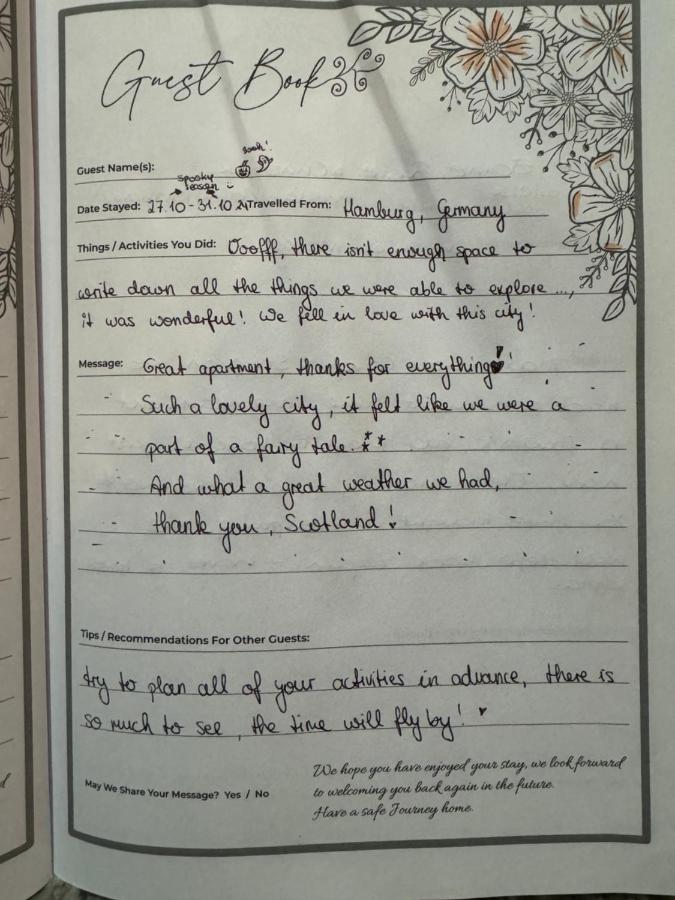 Guest Book
oooh!
Guest Name(s):
spooky
season
Date Stayed: 27.10 - 31.10.24 Travelled From: Hamburg, Germany
Things / Activities You Did: Uoofff, there isn't enough space to
write down all the things we were able to explore ...,
it was wonderful! We fell in love with this city!
Message: Great apartment, thanks for everything!
Such a lovely city, it felt like we were a
part of a fairy tale.
And what a great weather we had,
thank you, Scotland!
Tips / Recommendations For Other Guests:
try to plan all of your activities in advance, there is
so much to see, the time will fly by!
May We Share Your Message? Yes / No
We hope you have enjoyed your stay, we look forward
to welcoming you back again in the future.
Have a safe Journey home.